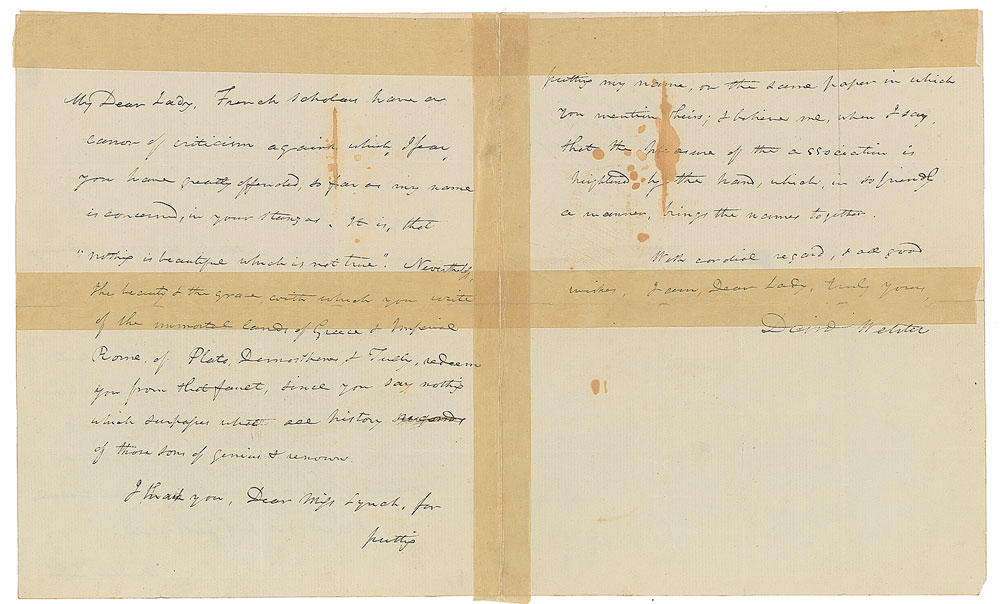 My Dear Lady, French Scholars have a
canon of criticism against which, I fear,
you have greatly offended, so far as my name
is concerned, in your stanzas. It is, that
"nothing is beautiful which is not true". Nevertheless,
the beauty & the grace, with which you write
of the immortal lands of Greece & Imperial
Rome, of Plato, Demosthenes & Tully, redeem
you from that fault, since you say nothing
which surpasses what all history records
of those sons of genius & renown.
I thank you, Dear Miss Lynch, for
putting
putting my name, on the same paper in which
you mention theirs; & believe me, when I say,
that the pleasure of the association is
heightened by the hand, which, in so friendly
a manner, brings the names together.
With cordial regard, & all good
wishes, I am, Dear Lady, truly yours,
Danl Webster